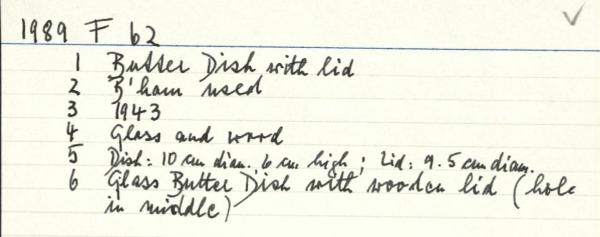 1989 F 62
1 Butter Dish with lid
2 B'ham used
3 1943
4 Glass and wood
5 Dish: 10 cm diam. 6 cm high; Lid: 9.5 cm diam.
6 Glass Butter Dish with wooden lid (hole
in middle)